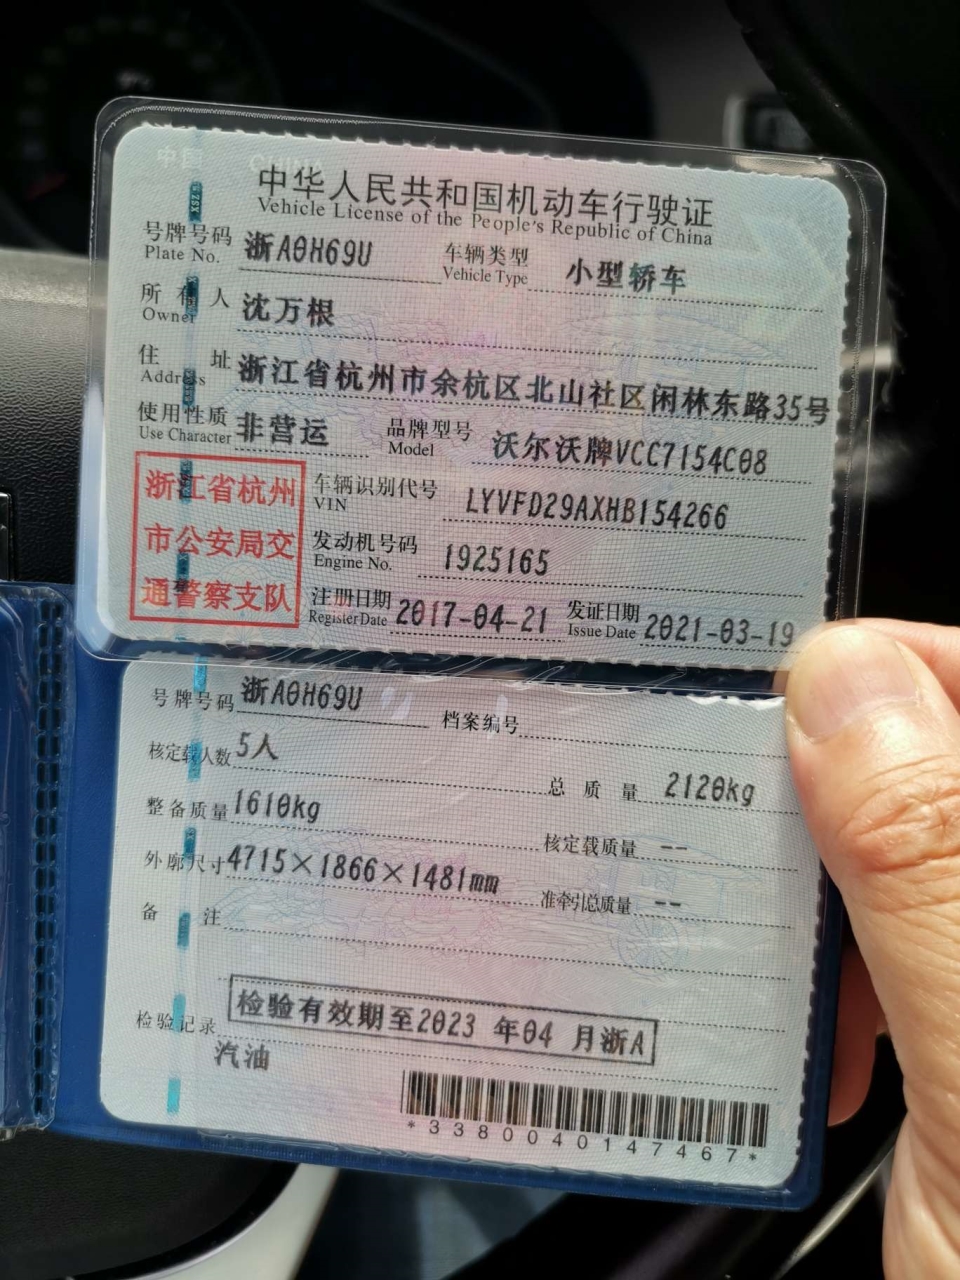 中国 CHINA
中华人民共和国机动车行驶证
Vehicle License of the People's Republic of China
号牌号码 浙A0H69U 车辆类型 小型轿车
Plate No. Vehicle Type
所有人 沈万根
Owner
住址 浙江省杭州市余杭区北山社区闲林东路35号
Address
使用性质 非营运 品牌型号 沃尔沃牌VCC7154C08
Use Character Model
浙江省杭州
市公安局交
通警察支队
车辆识别代号 LYVFD29AXHB154266
VIN
发动机号码 1925165
Engine No.
注册日期 2017-04-21 发证日期 2021-03-19
Register Date Issue Date
号牌号码 浙A0H69U 档案编号
核定载人数 5人 总质量 2120kg
整备质量 1610kg 核定载质量 --
外廓尺寸 4715×1866×1481mm 准牵引总质量 --
备注
检验记录 检验有效期至2023 年04 月浙A
汽油
*3380040147467*